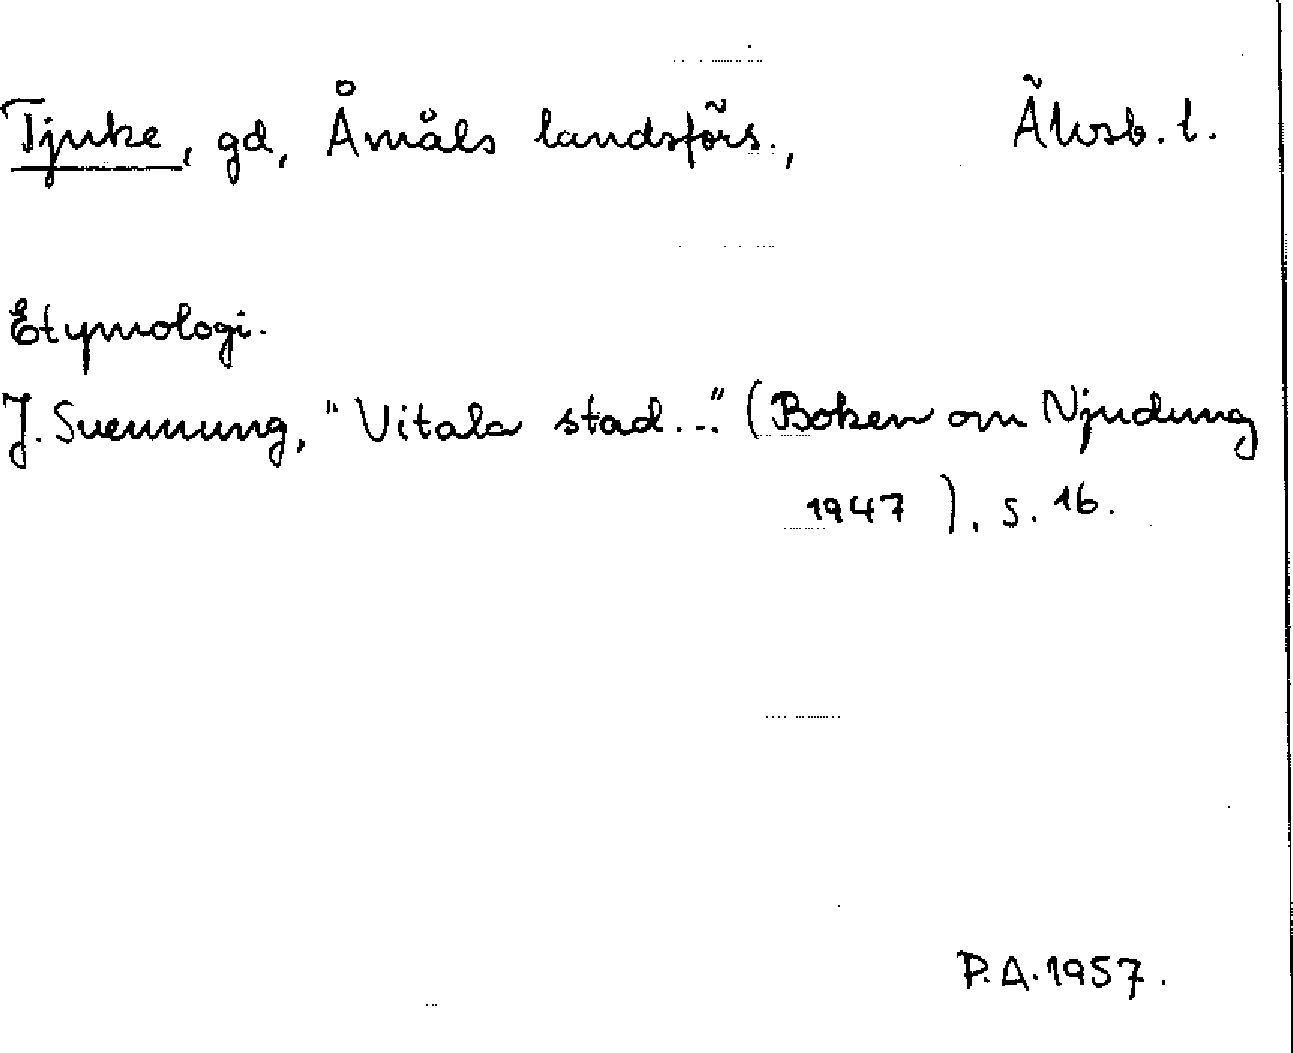 Tjuke, gd, Åmåls landsförs., Älvsb. l.
Etymologi.
J. Svennung, "Vitala stad..." (Boken om Njudung
1947), s. 16.
P.A. 1957.